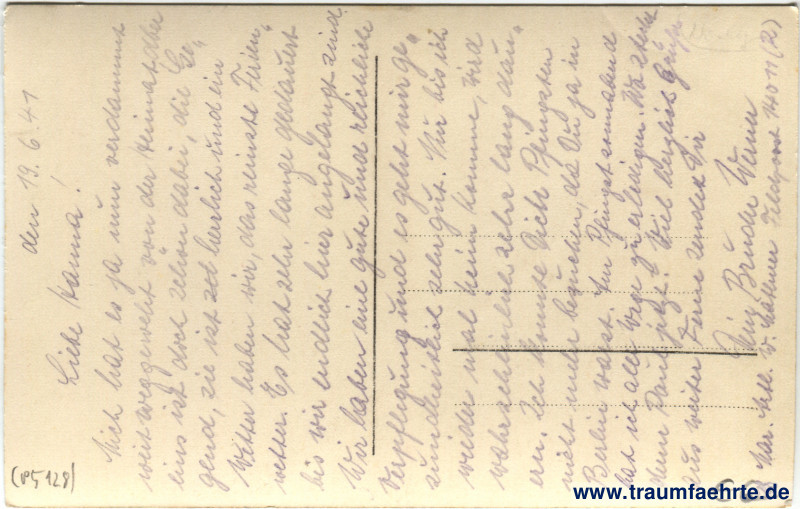 den 19.6.41
Liebe Hanna!
Mich hat es ja nun verdammt
weit weggeweht von der Heimat aber
eins ist doch schön dabei, die Ge„
gend, sie ist sehr herrlich und ein
Wetter haben wir, das reinste Ferien„
wetter. Es hat sehr lange gedauert
bis wir endlich hier angelangt sind.
Wir haben eine gute und reichliche
Verpflegung und es geht mir ge„
sundheitlich sehr gut. Nur bis ich
wieder mal heim komme, wird
wahrscheinlich sehr lang dau„
ern. Ich konnte Dich Pfingsten
nicht mehr besuchen, da Du ja in
Berlin warst. Am Pfingstsonnabend
hat ich aller Wege zu erledigen. Was steckst
denn Du jetzt? Viel herzliche Grüße
aus weiter Ferne sendet Dir
Dein Bruder Werner
Feldpost 14011 (R)
(P5128)
www.traumfaehrte.de